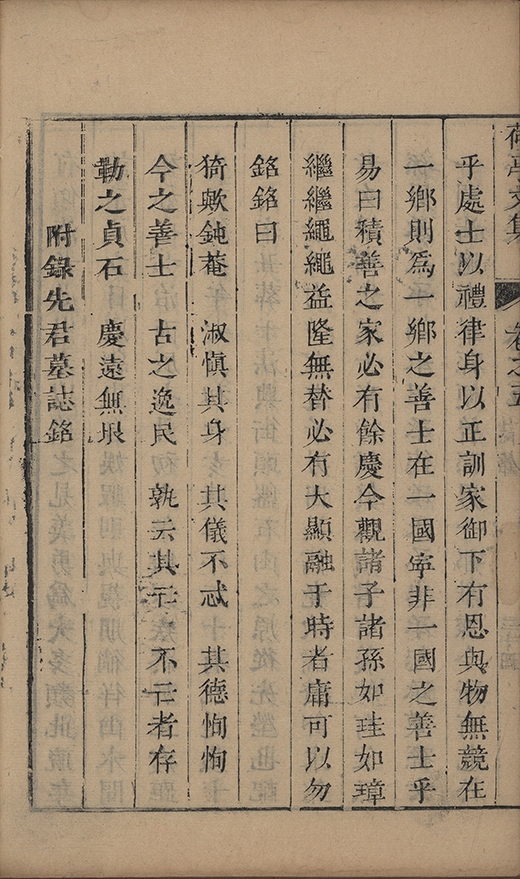 荷亭文集 卷之五
乎處士以禮律身以正訓家御下有恩與物無競在
一鄉則爲一鄉之善士在一國寜非一國之善士乎
易曰積善之家必有餘慶今觀諸子諸孫如珪如璋
繼繼繩繩益隆無替必有大顯融于時者庸可以勿
銘銘曰
猗歟鈍菴 淑慎其身 其儀不忒 其德恂恂
今之善士 古之逸民 孰云其亡 不亡者存
勒之貞石 慶遠無垠
附錄先君墓誌銘